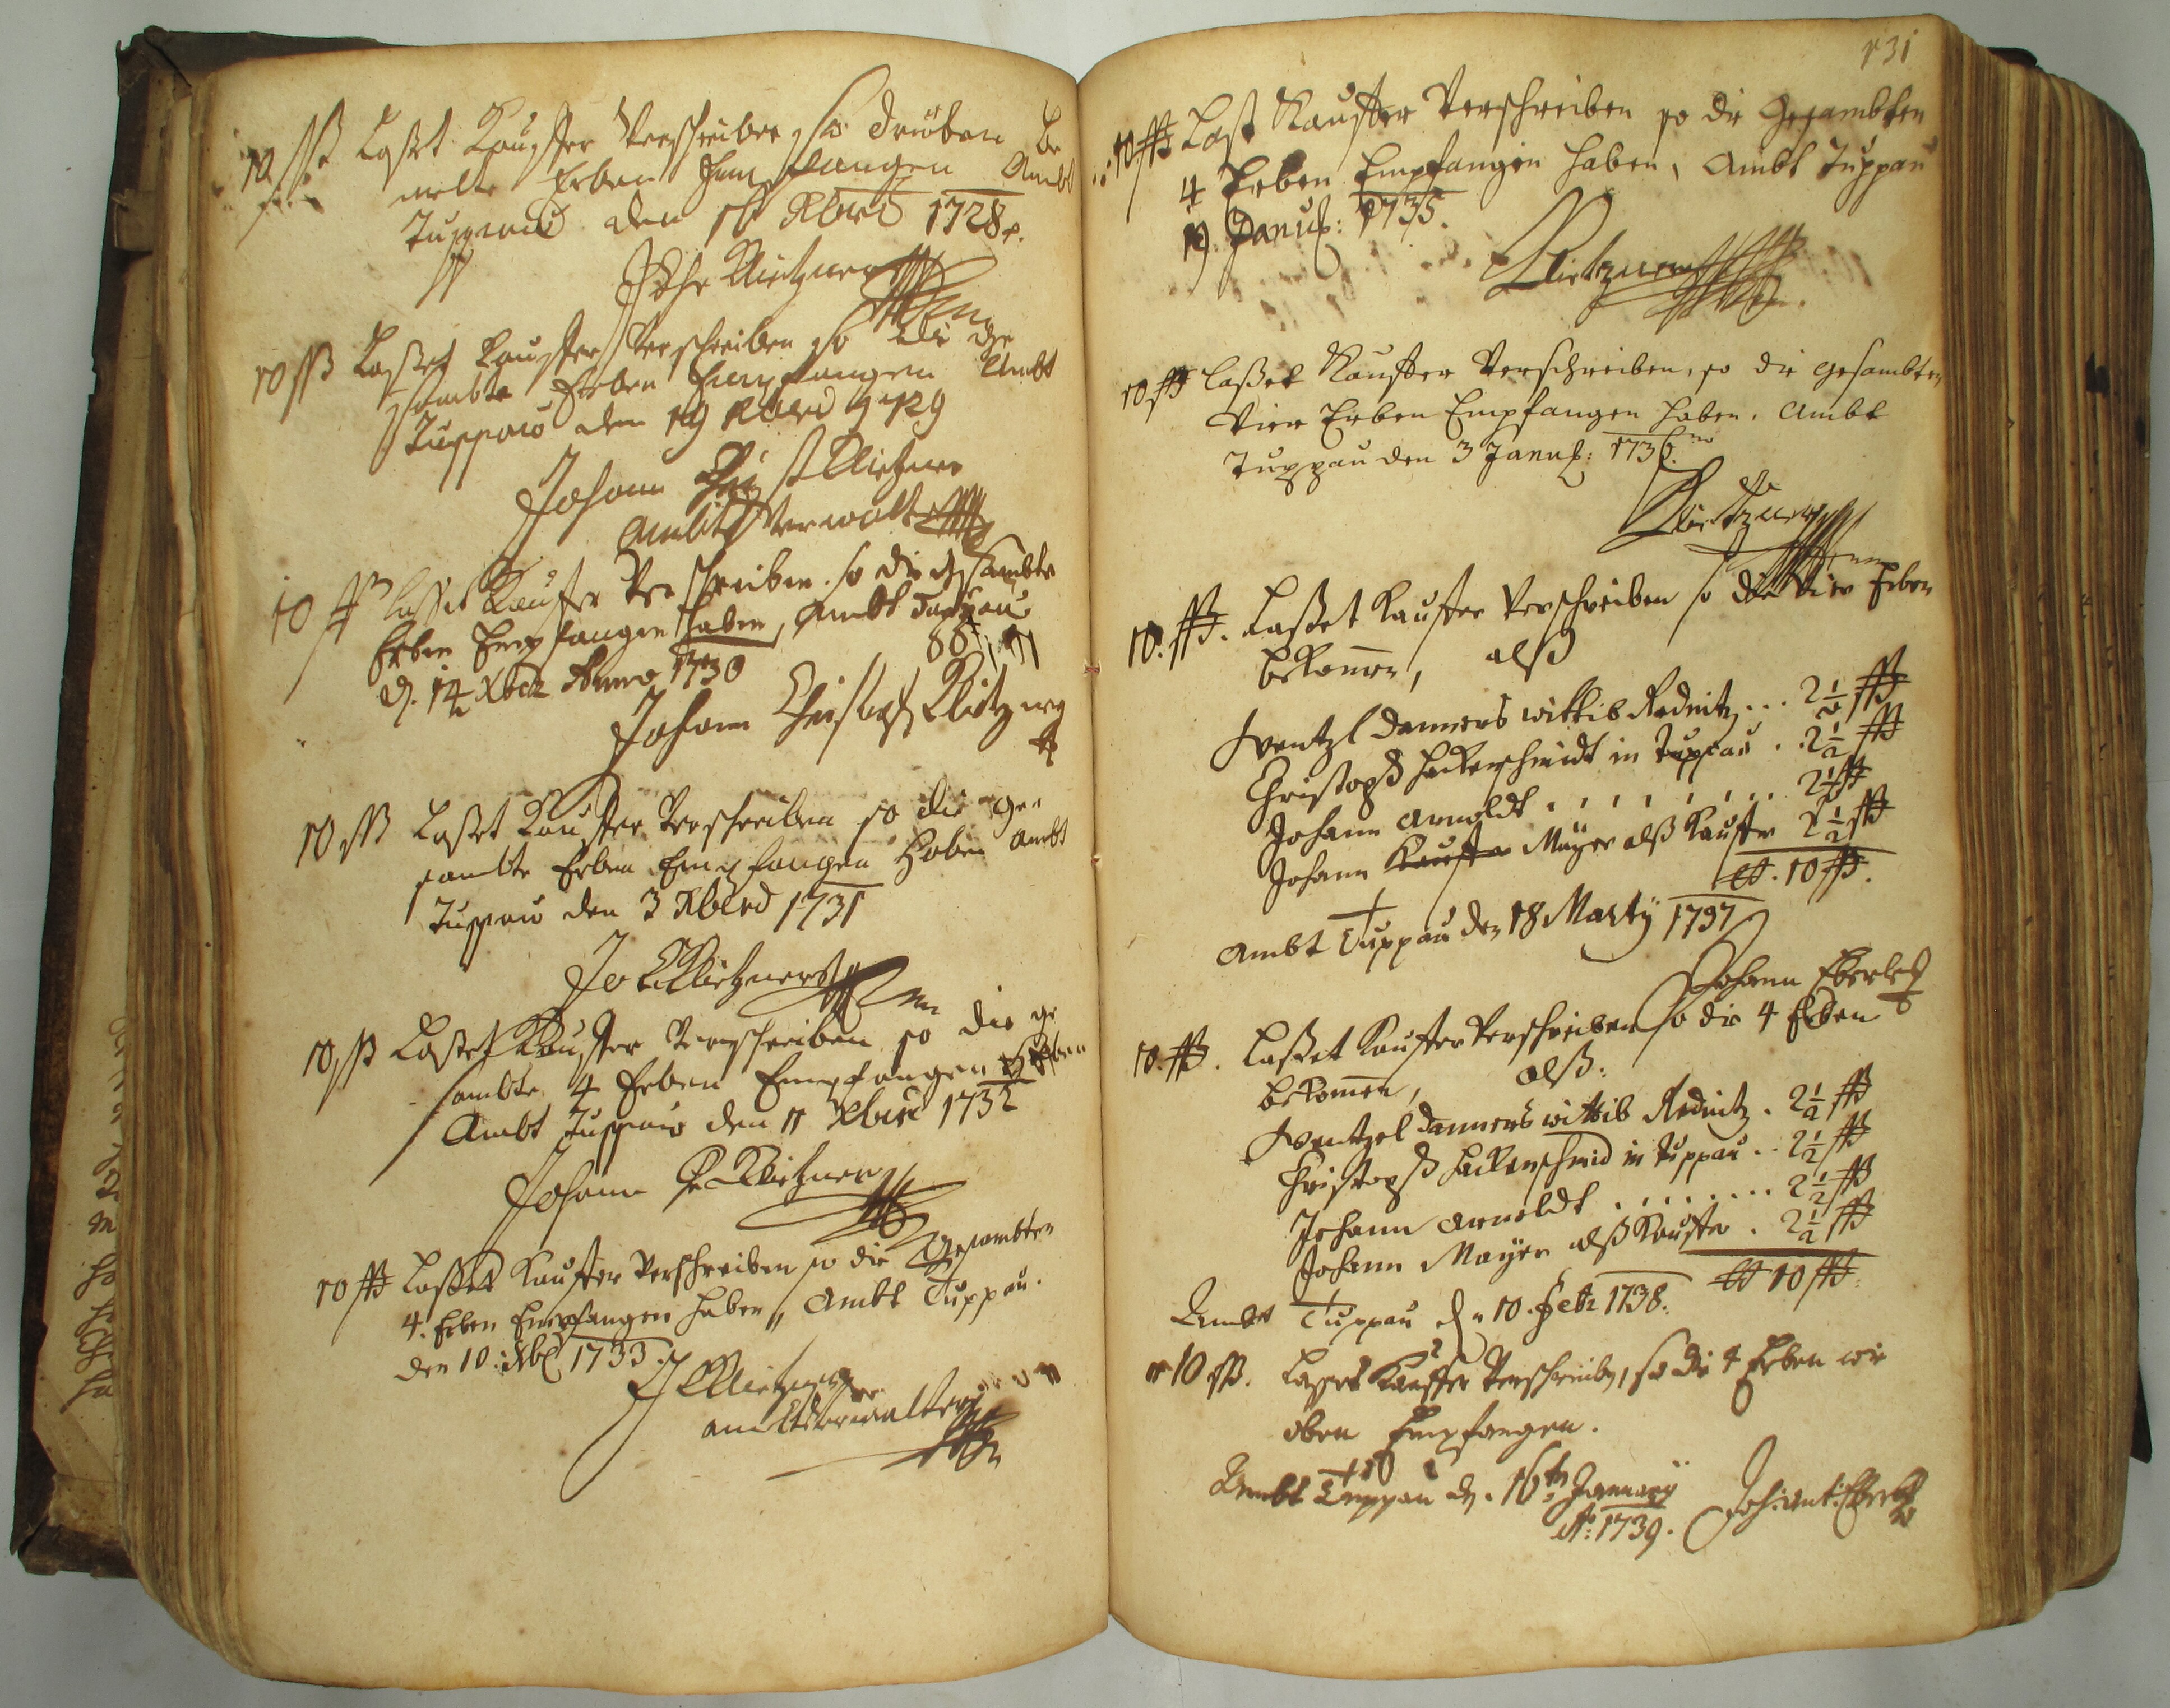 10 ßß Laßet Kauffer Verschreiben so droben be
melte Erben Empfangen Ambt
Tuppau den 16 Xbris 1728
Klietzner
10 ßß Laßet Kauffer Verschreiben so die ge
sambte Erben Empfangen Ambt
Tuppau den 19 Xbris 1729
Johann Christ Klietzner
Ambts Verwalter
10 ßß lasset Kauffer Verschreiben so die gesambte
Erben Empfangen haben, Ambt Tuppau
d. 14 Xber Anno 1730
Johann Christoph Klietzner
10 ßß Laßet Kauffer Verschreiben so die ge
sambte Erben Empfangen haben Ambt
Tuppau den 3 Xbris 1731
Jo C Klietzner
10 ßß Laßet Kauffer Verschreiben so die ge
sambte 4 Erben Empfangen haben
Ambt Tuppau den 11 Xbris 1732
Johann C Klietzner
10 ßß Laßet Kauffer Verschreiben so die Gesambten
4. Erben Empfangen haben, Ambt Tuppau.
den 10. Xbr 1733.
J C Klietzner
ambtsverwalter
131
10 ßß Last Kauffer Verschreiben so die Gesambten
4 Erben Empfangen haben, Ambt Tuppau
19 Januar: 1735.
Klietzner
10 ßß laßet Kauffer Verschreiben, so die gesambten
Vier Erben Empfangen haben. Ambt
Tuppau den 3 Januar: 1736.
Klietzner
10. ßß. Laßet Kauffer Verschreiben so die Vier Erben
bekomen, alß
Wentzl Danners wittib Rednitz ... 2 1/2 ßß
Christoph Hackenschmidt in Tuppau . . 2 1/2 ßß
Johann Arnoldt . . . . . . . . 2 1/2 ßß
Johann Kauffer Mayer alß Kauffer 2 1/2 ßß
10 ßß.
Ambt Tuppau den 18 Marty 1737
Johann Eberle
10. ßß. Laßet Kauffer Verschreiben so die 4 Erben
bekomen, alß:
Wentzel Danners wittib Rednitz . 2 1/2 ßß
Christoph Hackenschmid in Tuppau . . 2 1/2 ßß
Johann Arnoldt . . . . . . . . 2 1/2 ßß
Johann Mayer alß Kauffer . 2 1/2 ßß
10 ßß.
Ambt Tuppau den 10. Febr 1738.
10 ßß. Lasset Kauffer Verschreiben, so die 4 Erben wie
oben Empfangen.
Ambt Tuppau d. 16ten January
Ao: 1739.